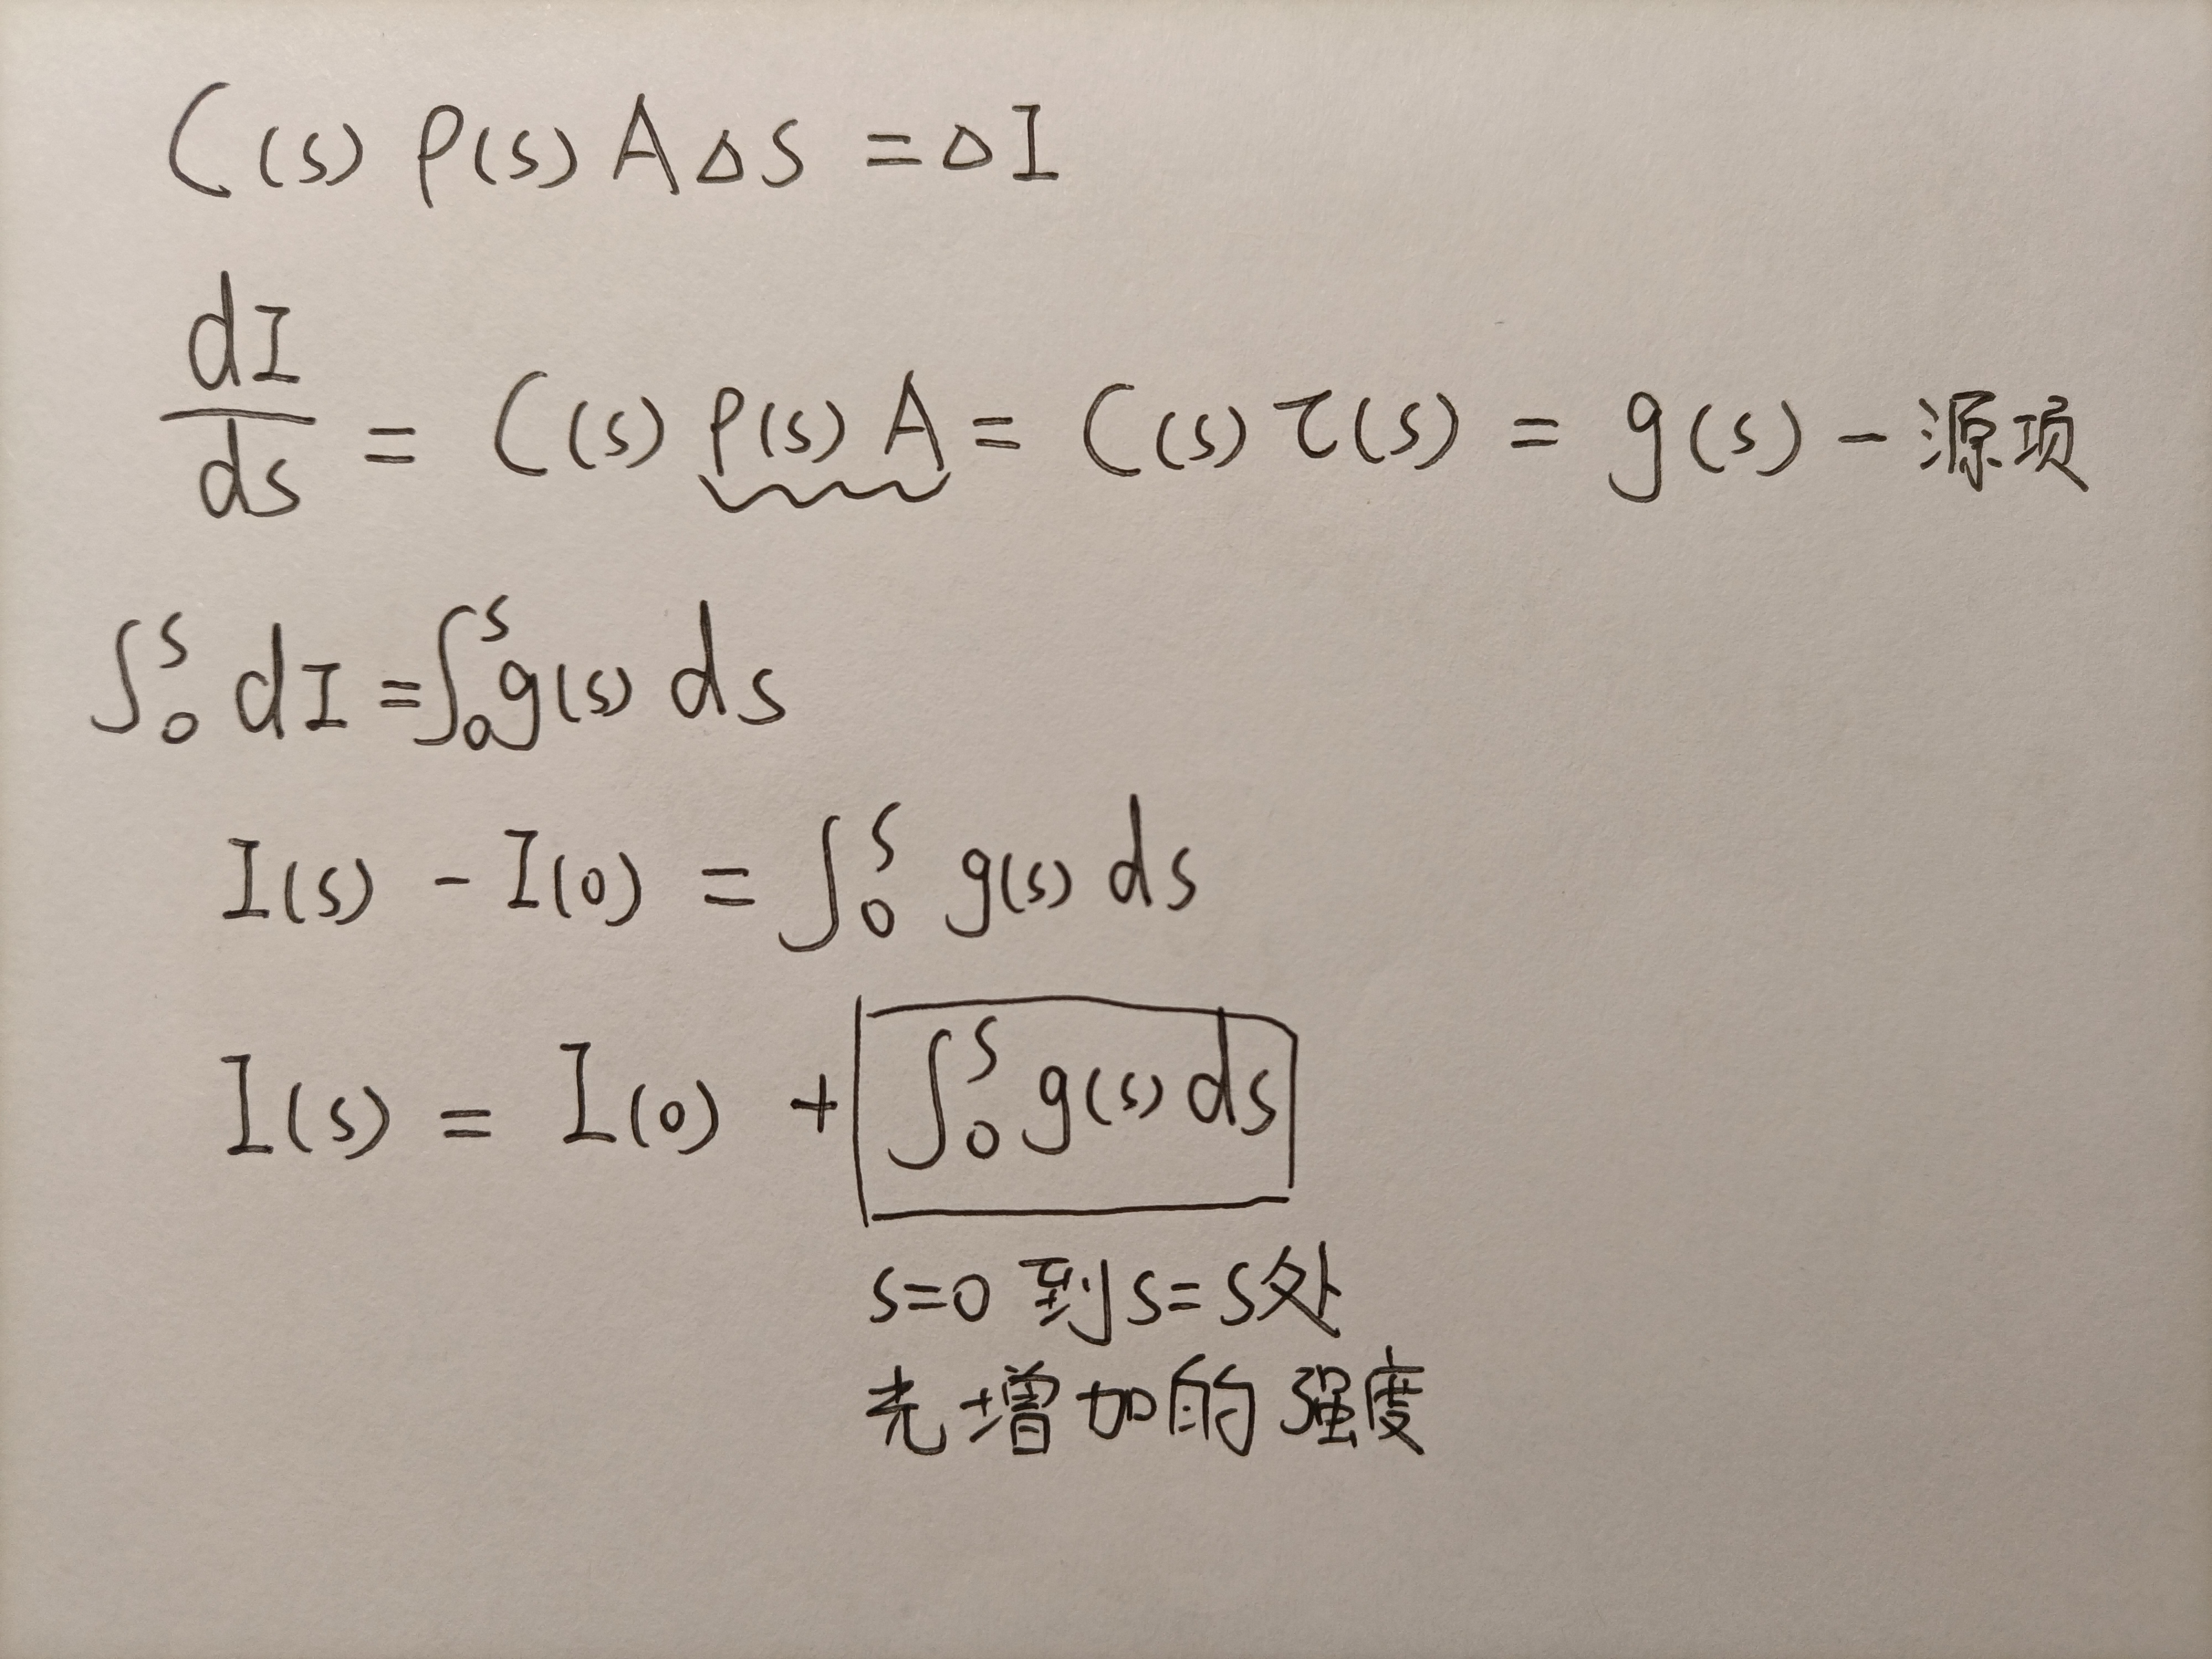 C(s) ρ(s) A Δs = ΔI
dI/ds = C(s) ρ(s) A = C(s) τ(s) = g(s) - 源项
∫₀ˢ dI = ∫₀ˢ g(s) ds
I(s) - I(0) = ∫₀ˢ g(s) ds
I(s) = I(0) + ∫₀ˢ g(s) ds
s=0 到 s=s处
光增加的强度